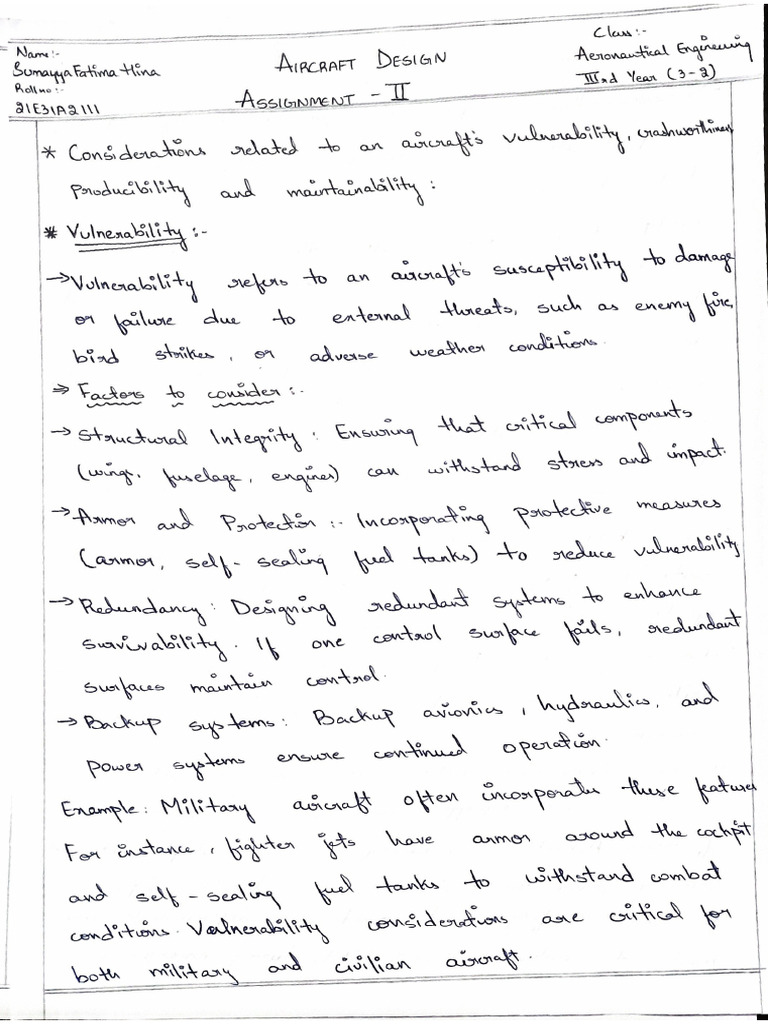 Name:-
Sumayya Fatima Hina
Roll no:-
21E31A2111
AIRCRAFT DESIGN
ASSIGNMENT - II
Class:-
Aeronautical Engineering
IIIrd Year (3-2)
* Considerations related to an aircraft's vulnerability, crashworthiness
producibility and maintainability:
* Vulnerability:-
→ Vulnerability refers to an aircraft's susceptibility to damage
or failure due to external threats, such as enemy fire,
bird strikes, or adverse weather conditions.
⇒ Factors to consider:-
→ Structural Integrity: Ensuring that critical components
(wings, fuselage, engines) can withstand stress and impact.
→ Armor and Protection:- Incorporating protective measures
(armor, self-sealing fuel tanks) to reduce vulnerability
→ Redundancy: Designing redundant systems to enhance
survivability. If one control surface fails, redundant
surfaces maintain control.
→ Backup systems: Backup avionics, hydraulics, and
power systems ensure continued operation.
Example: Military aircraft often incorporate these features
For instance, fighter jets have armor around the cockpit
and self-sealing fuel tanks to withstand combat
conditions. Vulnerability considerations are critical for
both military and civilian aircraft.